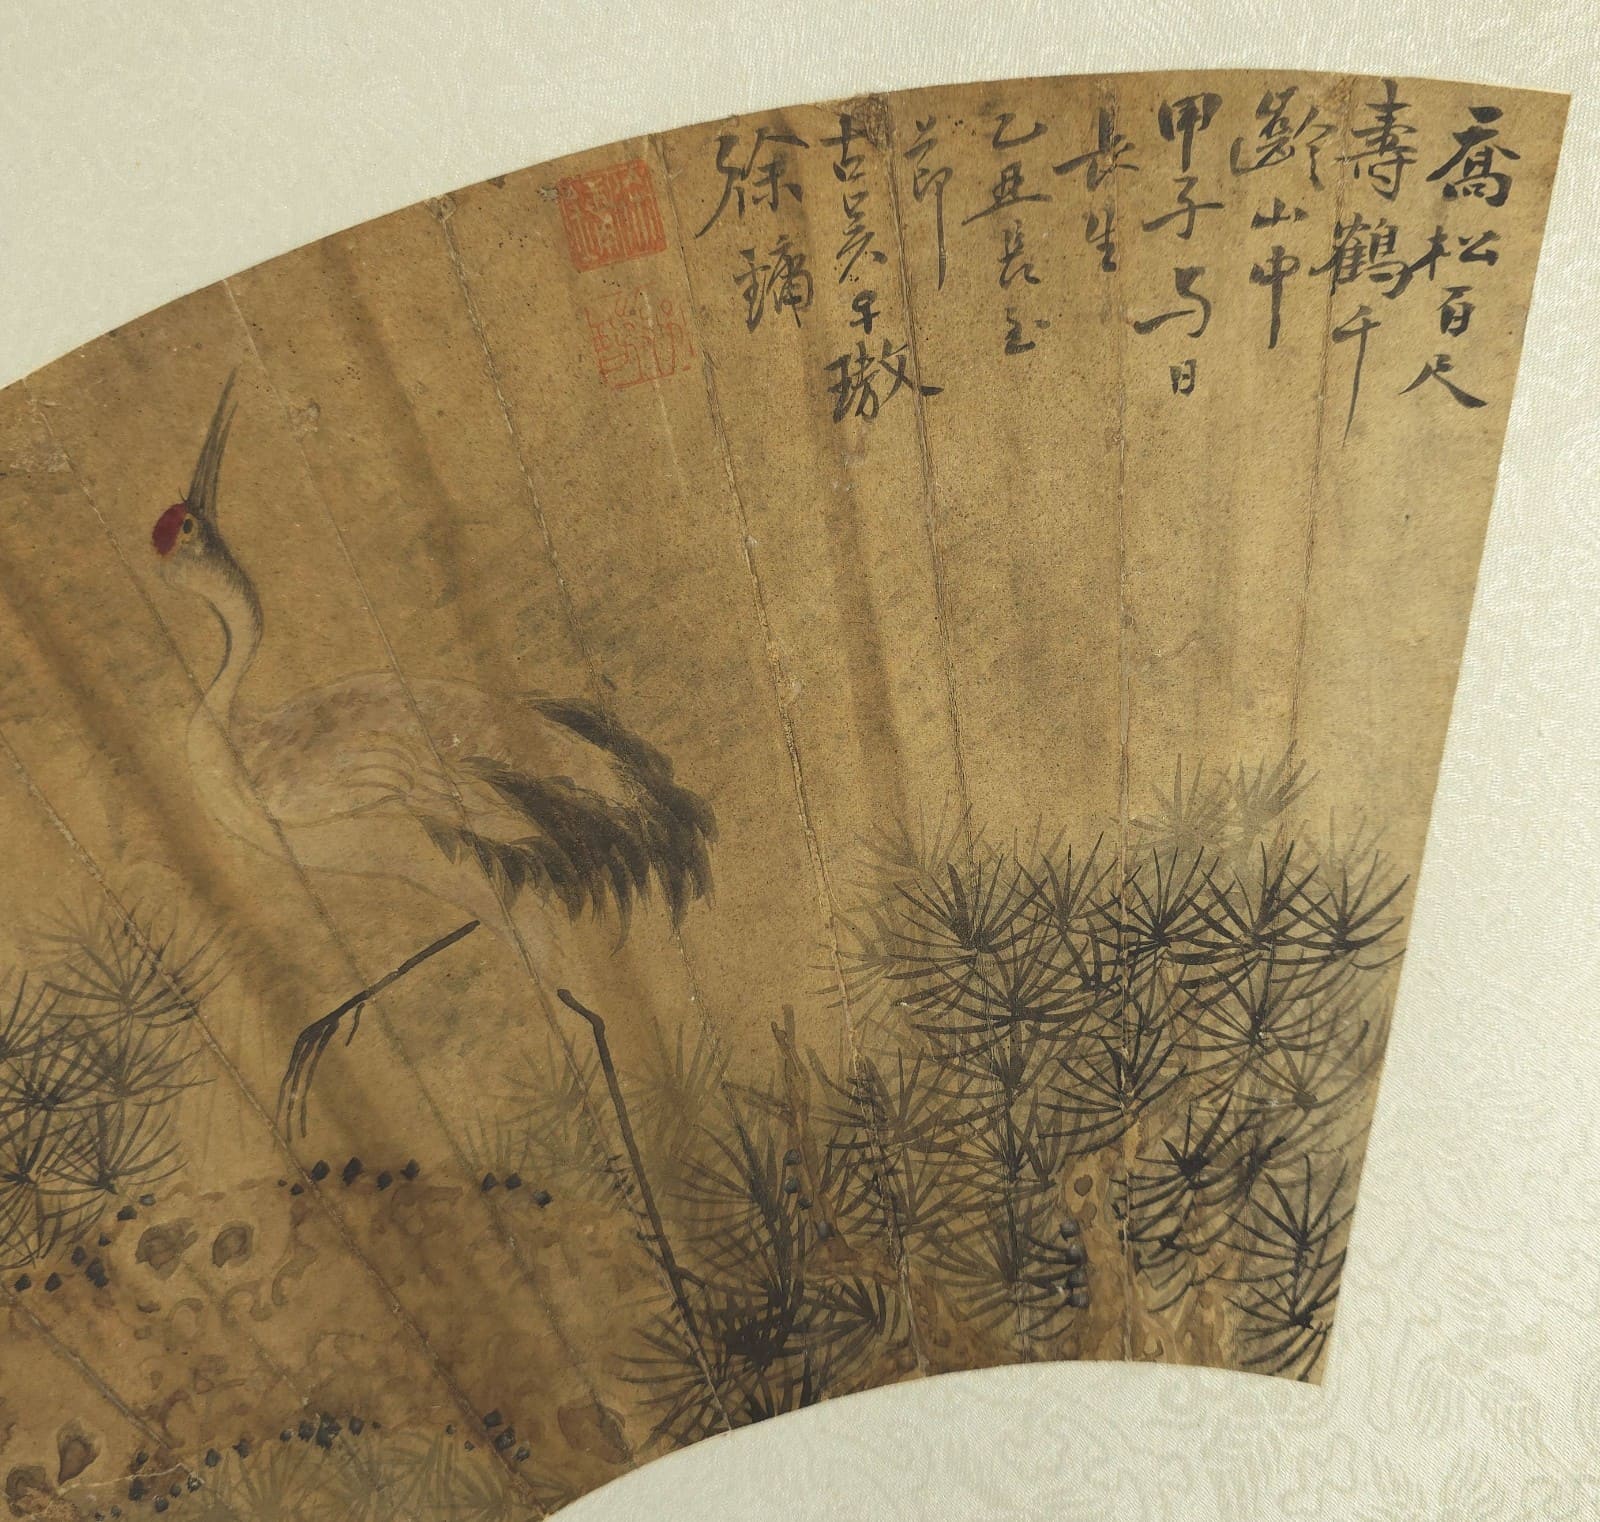 喬松百尺
壽鶴千
齡山中
甲子與日
長生
乙丑長至
節
古吳
徐鏞